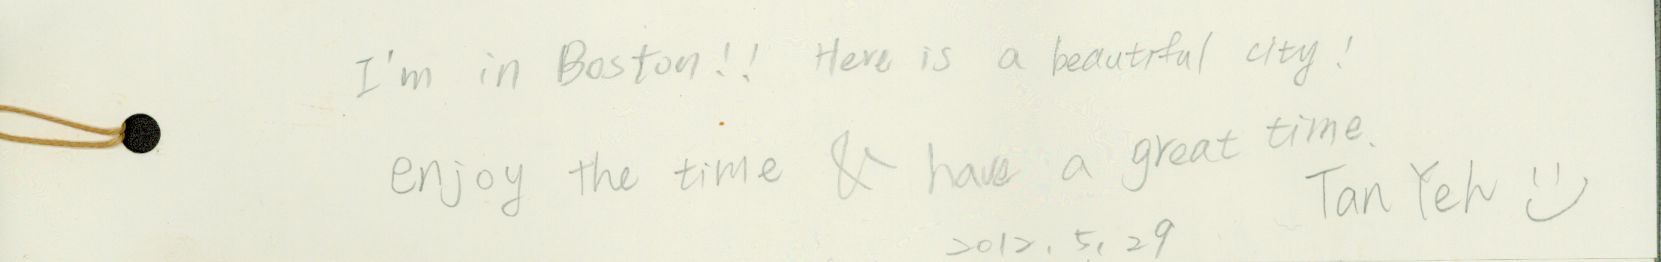 I'm in Boston!! Here is a beautiful city!
enjoy the time & have a great time.
Tan Yeh
2012. 5. 29